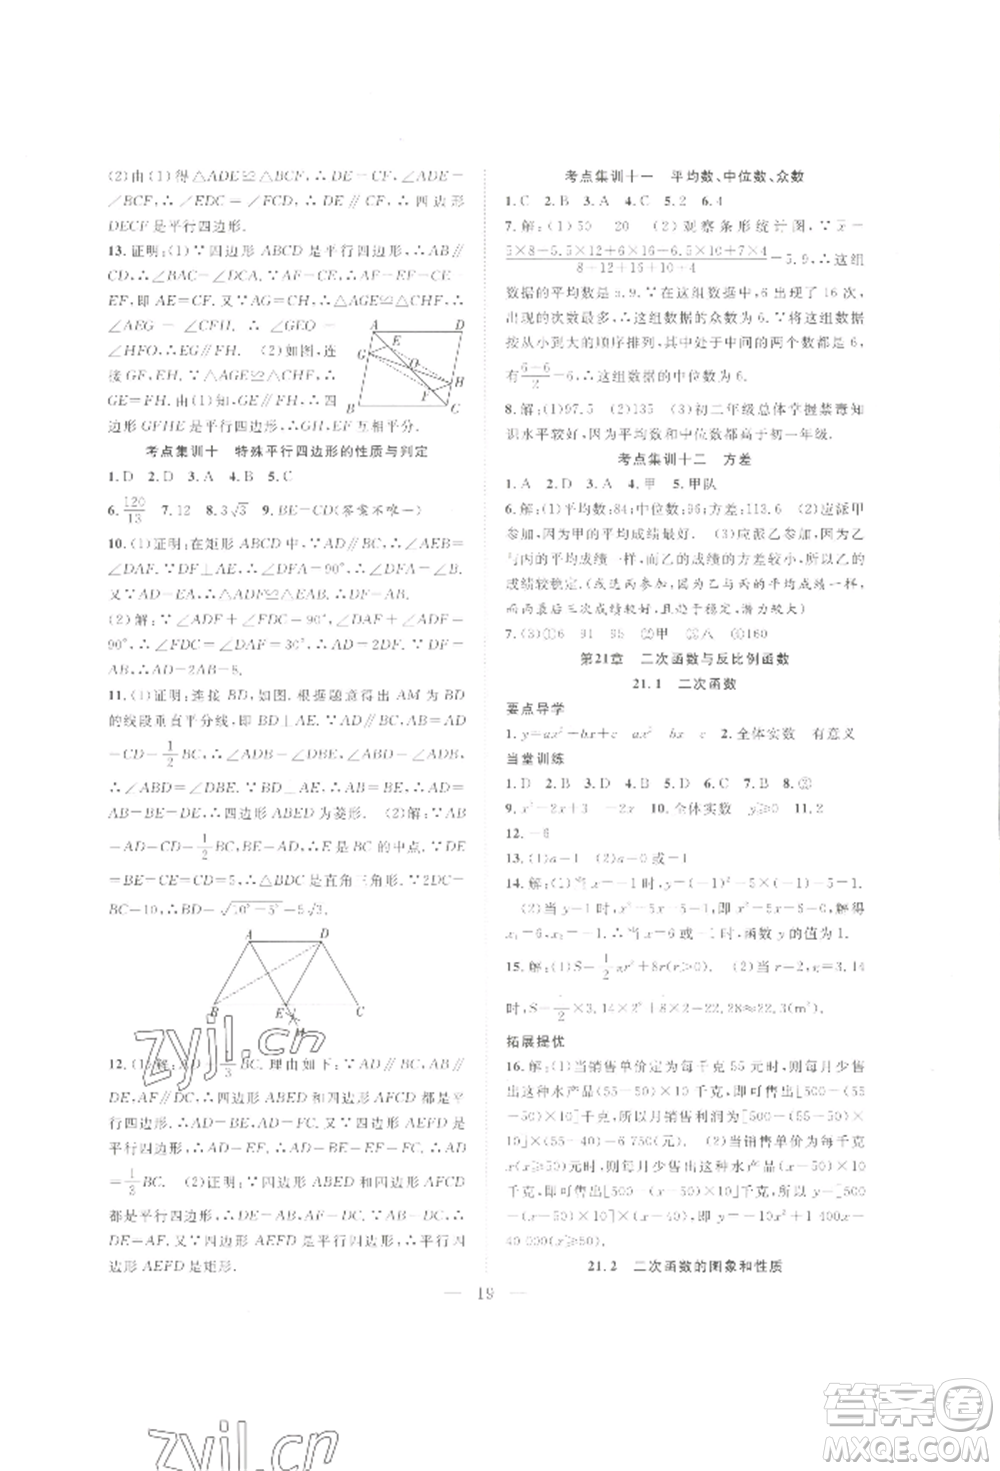 (2)由(1)得△ADE≌△BCF,∴DE=CF,∠AED=
∠BFC,∴∠EDC=∠FCD,∴DE∥CF,∴四边形
DECF是平行四边形.
13.证明:(1)∵四边形ABCD是平行四边形,∴AB∥
CD,∴∠BAC=∠DCA,∵AF=CE,∴AF-EF=CE-
EF,即AE=CF.又∵AG=CH,∴△AGE≌△CHF,∴
∠AEG=∠CFH,∴∠GEO=
∠HFO,∴EG∥FH.(2)如图,连
接GF,EH,∵△AGE≌△CHF,∴
GE=FH.由(1)知,EG∥FH,∴四
边形GFHE是平行四边形,∴EF与GH互相平分.
A
D
E
G
O
H
F
B
C
考点集训十 特殊平行四边形的性质与判定
1.D 2.D 3.A 4.B 5.C
6.120/13 7.12 8.3√3 9.BE=CD(答案不唯一)
10.(1)证明:在矩形ABCD中,∵AD∥BC,∴∠AEB=
∠DAF.∵DF⊥AE,∴∠DFA=90°,∴∠DFA=∠B.
又AD=EA,∴△ADF≌△EAB,∴DF=AB.
(2)解:∵∠ADF+∠FDC=90°,∠DAF+∠ADF=
90°,∴∠FDC=∠DAF=30°,∴AD=2DF.∵DF=
AB,∴AD=2AB=8.
11.(1)证明:连接BD,如图.根据题意可得AM为BD
的线段垂直平分线,∵BD⊥AE,∴AB=AD.∵AD=
BE=1/2BC,∴∠ADB=∠ABD.∵AD∥BC,∴∠ADB=
∠DBE,∴∠ABD=∠DBE.∵BD⊥AE,∴AB=BE,∴
AB=BE=DE,∴四边形ABED为菱形. (2)解:∵
AD=BE=1/2BC,∴E是BC的中点.∵AB=AD=DE=
BE=CE=5,∴△BDC是直角三角形.∵DC=5,
BC=10,∴BD=√(10²-5²)=5√3.
A
D
B
E
C
M
12.(1)解:AD=1/3BC.理由如下:∵AD∥BC,AB∥
DE,AF∥DC,∴四边形ABED和四边形AFCD都是平
行四边形,∴AD=BE,AD=FC.∵四边形AEFD是
平行四边形,∴AD=EF,∴AD=BE=EF=FC,∴AD=
1/3BC. (2)证明:∵四边形ABED和四边形AFCD
都是平行四边形,∴DE=AB,AF=DC.∵AB=DC,∴
DE=AF.又∵四边形AEFD是平行四边形,∴四边
形AEFD是矩形.
考点集训十一 平均数、中位数、众数
1.C 2.B 3.A 4.C 5.2 6.4
7.解:(1)50 20 (2)观察条形统计图,∵x̄=
(5×8+5.5×12+6×16+6.5×10+7×4)/(8+12+16+10+4)=5.9,∴这组
数据的平均数是5.9.∵在这组数据中,6出现了16次,
出现的次数最多,∴这组数据的众数为6.∵将这组数
据按从小到大的顺序排列,其中处于中间的两个数都是6,
有(6+6)/2=6,∴这组数据的中位数为6.
8.解:(1)97.5 (2)135 (3)初二年级总体掌握禁毒知
识水平较好,因为平均数和中位数都高于初一年级.
考点集训十二 方差
1.A 2.D 3.A 4.甲 5.甲队
6.解:(1)平均数:84;中位数:96;方差:113.6 (2)应派甲
参加,因为甲的平均成绩高. (3)应派乙参加.∵乙
与丙的平均成绩一样,而乙的成绩的方差较小,所以乙的
成绩较稳定.(派丙参加,因为乙与丙的平均成绩一样,
而丙最后三次成绩较好且趋于稳定,潜力较大)
7.(3)①6 91 95 ②甲 ③八 ④160
第21章 二次函数与反比例函数
21.1 二次函数
要点导学
1.y=ax²+bx+c ax² bx c 2.全体实数 有意义
当堂训练
1.D 2.B 3.A 4.D 5.B 6.C 7.B 8.②
9.x²-2x+3 -2x 10.全体实数 y≥0 11.2
12.-6
13.(1)a=1 (2)a=0或-1
14.解:(1)当x=1时,y=1-7×1+5=-1.
(2)当y=1时,x²-7x+5=1,x²-7x+6=0,解得
x₁=6,x₂=1,∴当x=6或x=1时,函数y的值为1.
15.解:(1)S=1/2πr²+8r(r>0). (2)当r=2,π=3.14
时,S=1/2×3.14×2²+8×2=22.28≈22.3(m²).
拓展提优
16.解:(1)当销售单价定为每千克55元时,则每月少售
出这种水产品(55-50)×10千克,即可售出[500-(55-
50)×10]千克,所以月销售利润为[500-(55-50)×
10]×(55-40)=6 750(元). (2)当销售单价为每千克
x(x≥50)元时,则每月少售出这种水产品(x-50)×10
千克,即可售出[500-(x-50)×10]千克,所以y=[500-
(x-50)×10](x-40),即y=-10x²+1 400x-
40 000(x≥50).
21.2 二次函数的图象和性质
— 19 —
zyjl.cn
zyjl.cn
答案圈
MXQE.COM